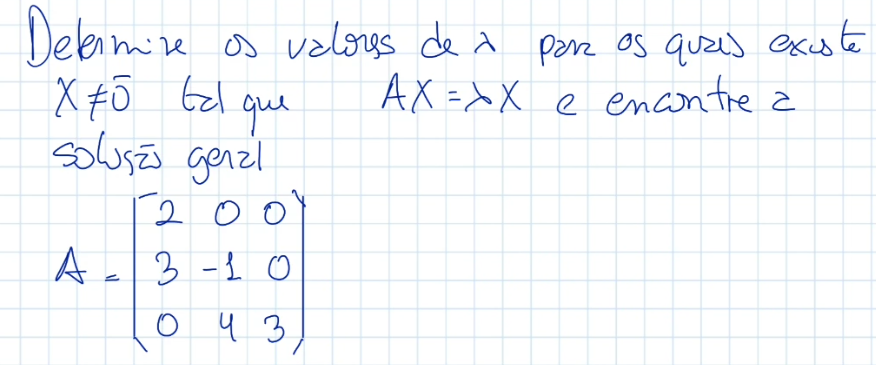 Determine os valores de λ para os quais existe
X ≠ 0̄ tal que AX = λX e encontre a
solução geral
A = [2 0 0
3 -1 0
0 4 3]